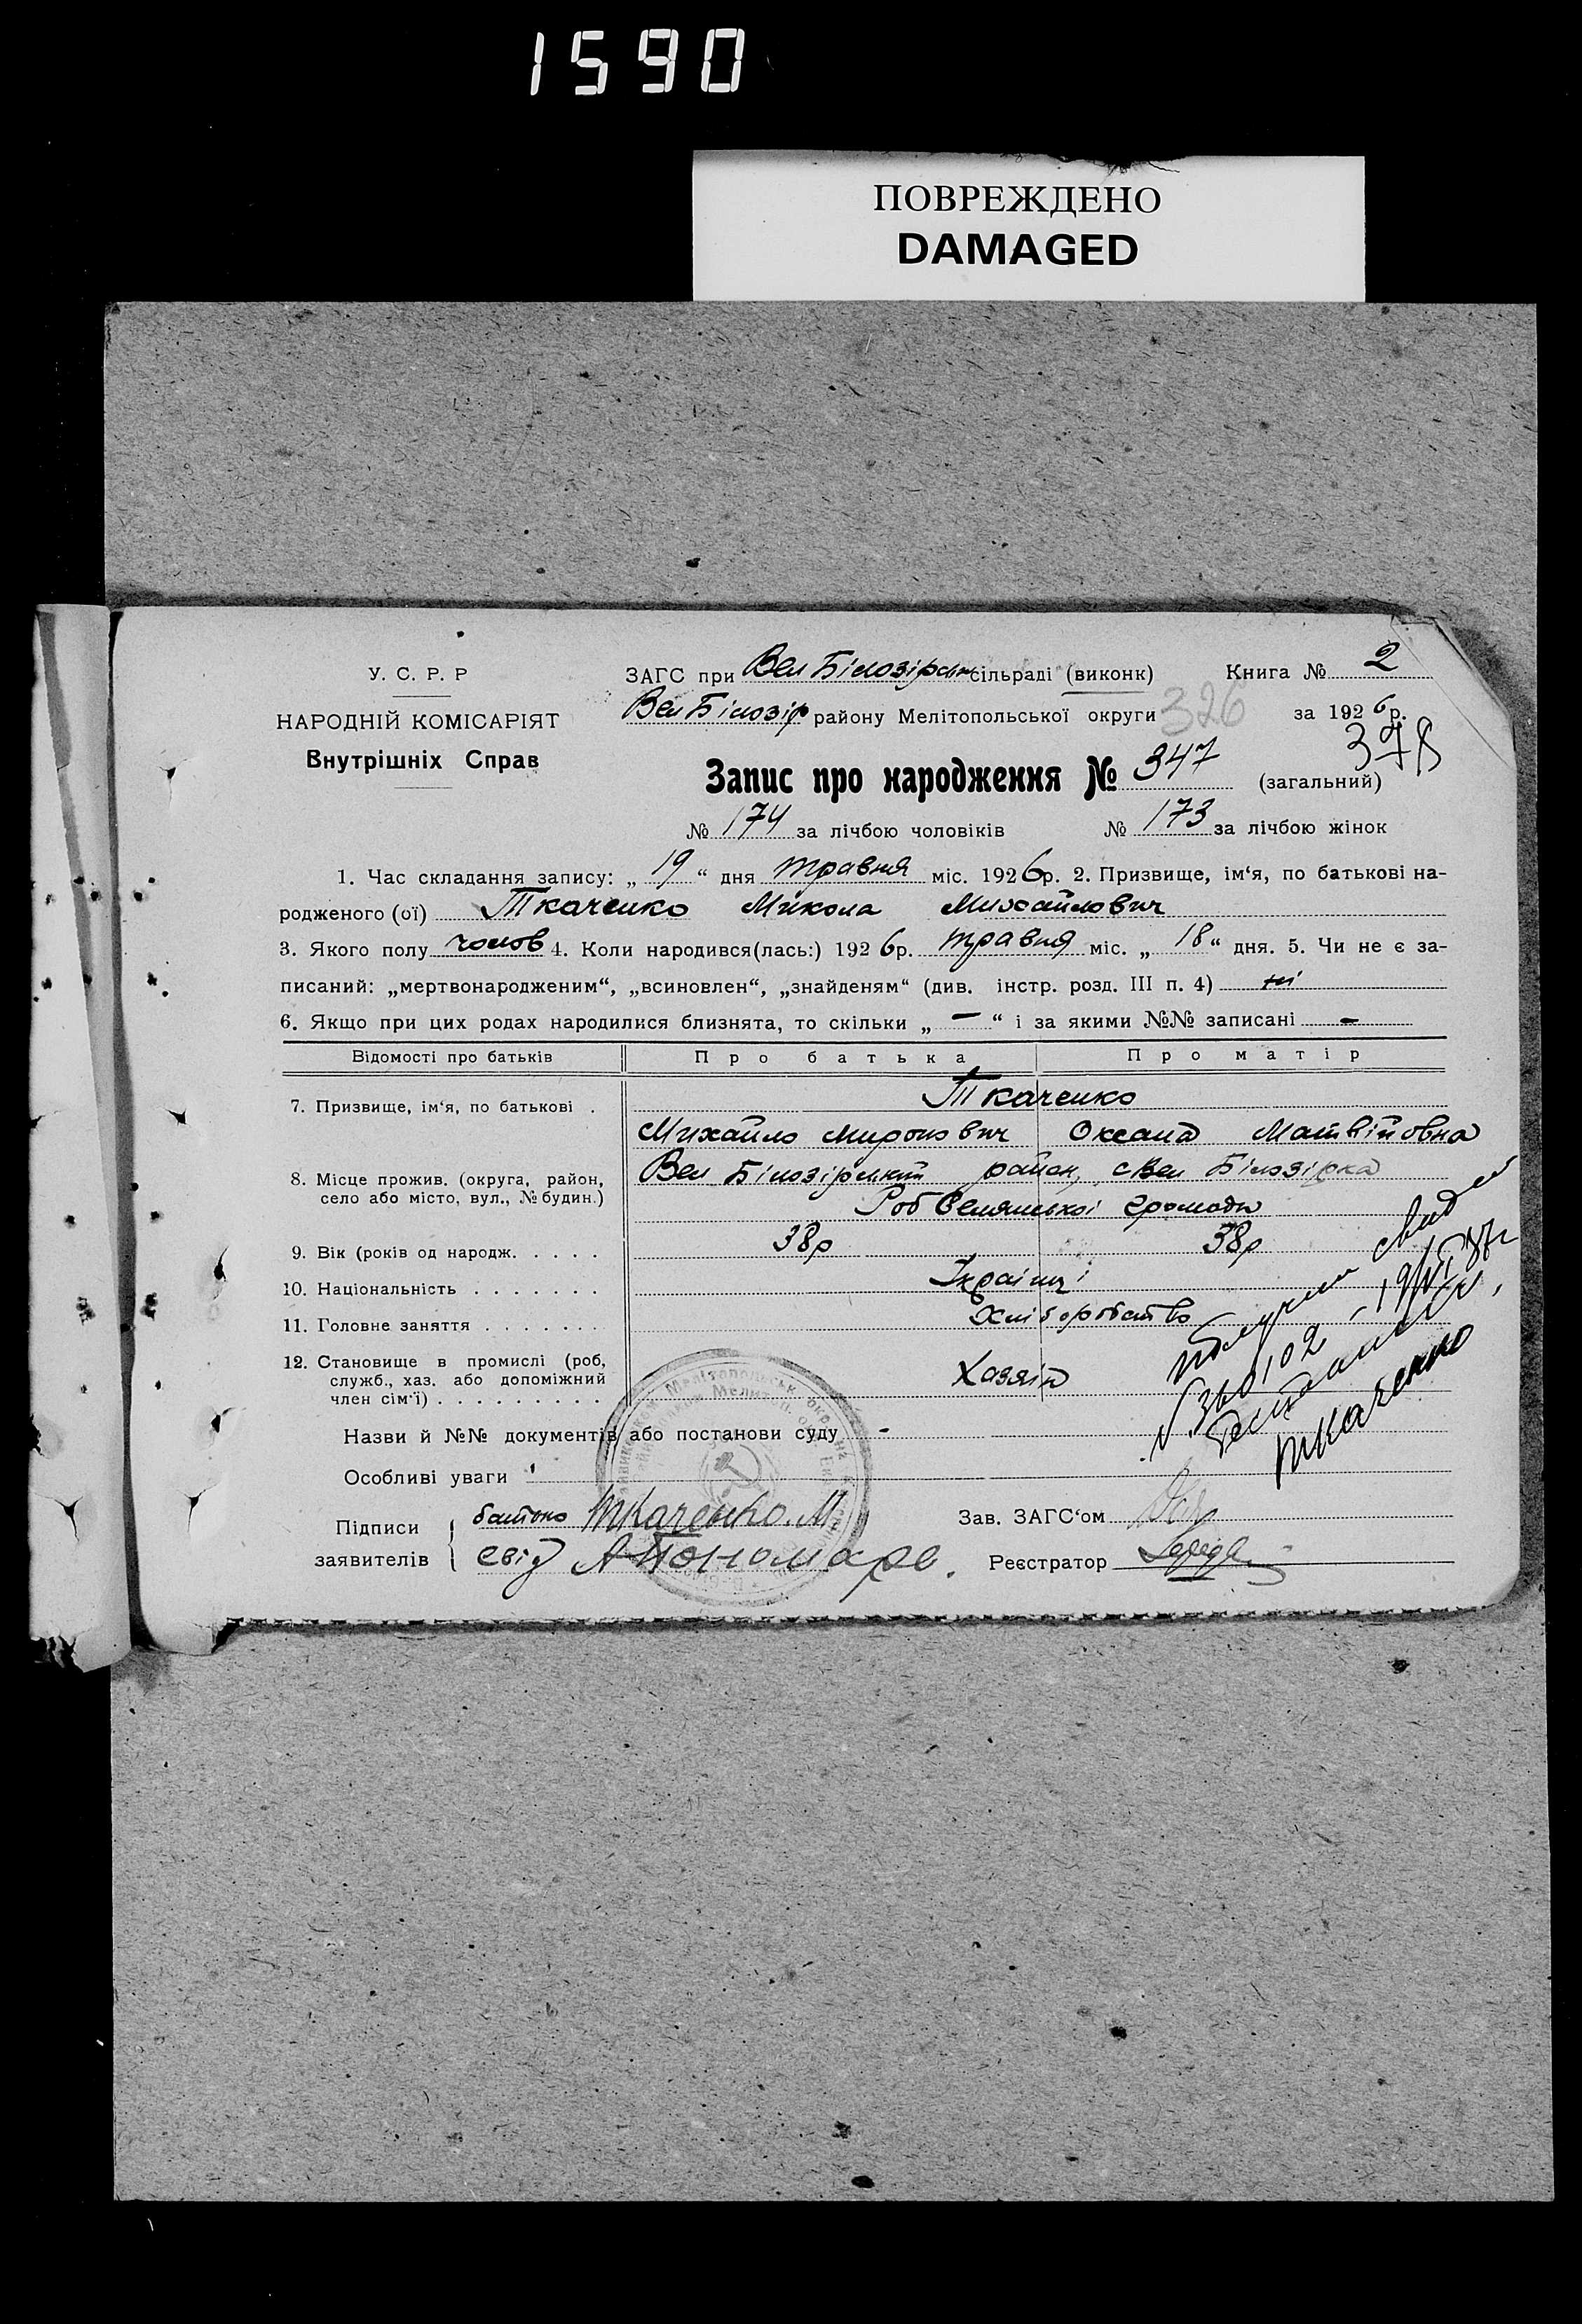 1590
ПОВРЕЖДЕНО
DAMAGED
У. С. Р. Р
НАРОДНІЙ КОМІСАРІЯТ
Внутрішніх Справ
ЗАГС при Вел Білозірськ сільраді (виконк) Книга № 2
Вел Білозір району Мелітопольської округи 326 за 1926 р.
378
Запис про народження № 347 (загальний)
№ 174 за лічбою чоловіків № 173 за лічбою жінок
1. Час складання запису: „ 19 “ дня травня міс. 1926р. 2. Призвище, ім‘я, по батькові на-
родженого (ої) Ткаченко Микола Михайлович
3. Якого полу чолов 4. Коли народився(лась:) 1926р. травня міс. „ 18 “ дня. 5. Чи не є за-
писаний: „мертвонародженим“, „всиновлен“, „знайденям“ (див. інстр. розд. III п. 4) ні
6. Якщо при цих родах народилися близнята, то скільки „ — “ і за якими №№ записані —
Відомості про батьків Про батька Про матір
7. Призвище, ім‘я, по батькові . Ткаченко
Михайло Миронович Оксана Матвійовна
8. Місце прожив. (округа, район, Вел Білозірський район, с Вел Білозірка
село або місто, вул., № будин.)
Роб Селянської громади
9. Вік (років од народж. . . . . 38р 38р
10. Національність . . . . . . . Українці
11. Головне заняття . . . . . . . Хліборобство
12. Становище в промислі (роб,
служб., хаз. або допоміжний Хазяїн
член сім‘ї) . . . . . . . . .
Назви й №№ документів або постанови суду -
Особливі уваги
Підписи батько Ткаченко. М Зав. ЗАГС‘ом
заявителів свід А Пономаре. Реєстратор
получили свид
Ткаченко